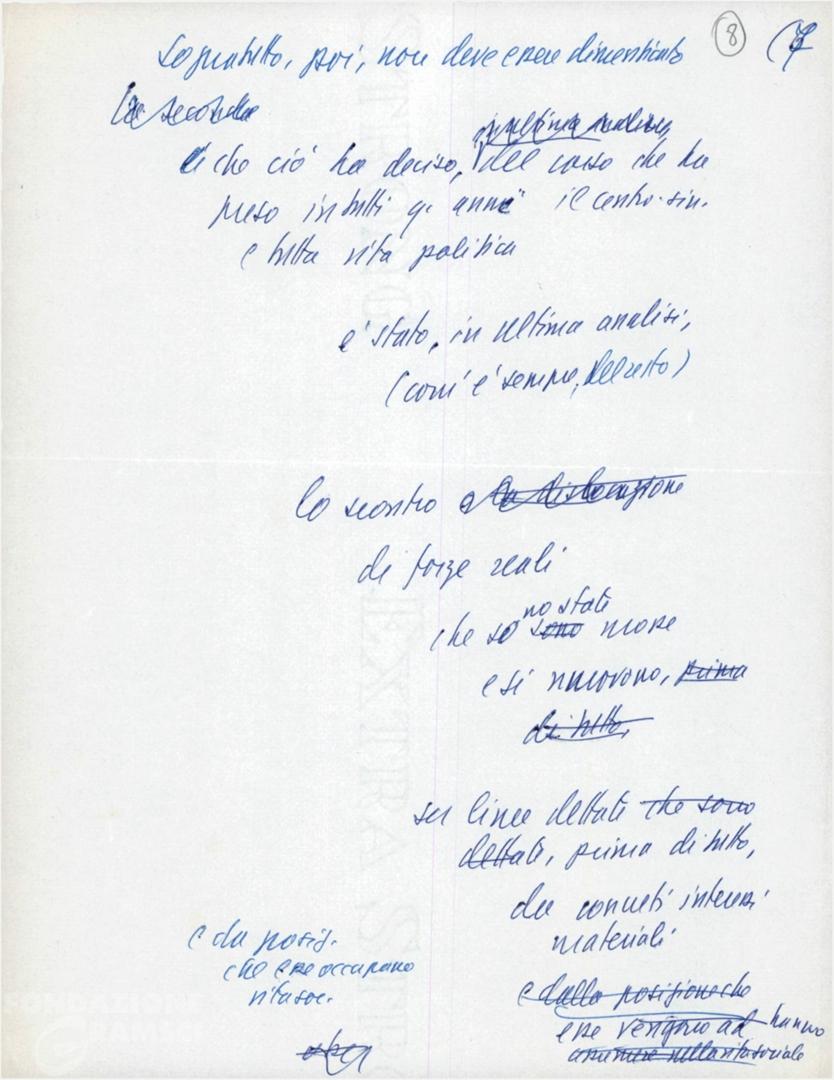 8 (7
Sopratutto, poi, non deve essere dimenticato
La seconda
che ciò ha deciso, in ultima analisi, del corso che ha
preso in tutti q. anni il centro-sin.
e tutta vita politica
e' stato, in ultima analisi,
(com'è sempre, del resto)
lo scontro e la dislocazione
di forze reali
no state
che so sono mosse
e si muovono, prima
di tutto,
su linee dettate che sono
dettate, prima di tutto,
da concreti interessi
materiali
e da posiz.
che esse occupano
vita soc.
e dalla posizione che
esse vengono ad hanno
assumere nella vita sociale
FONDAZIONE